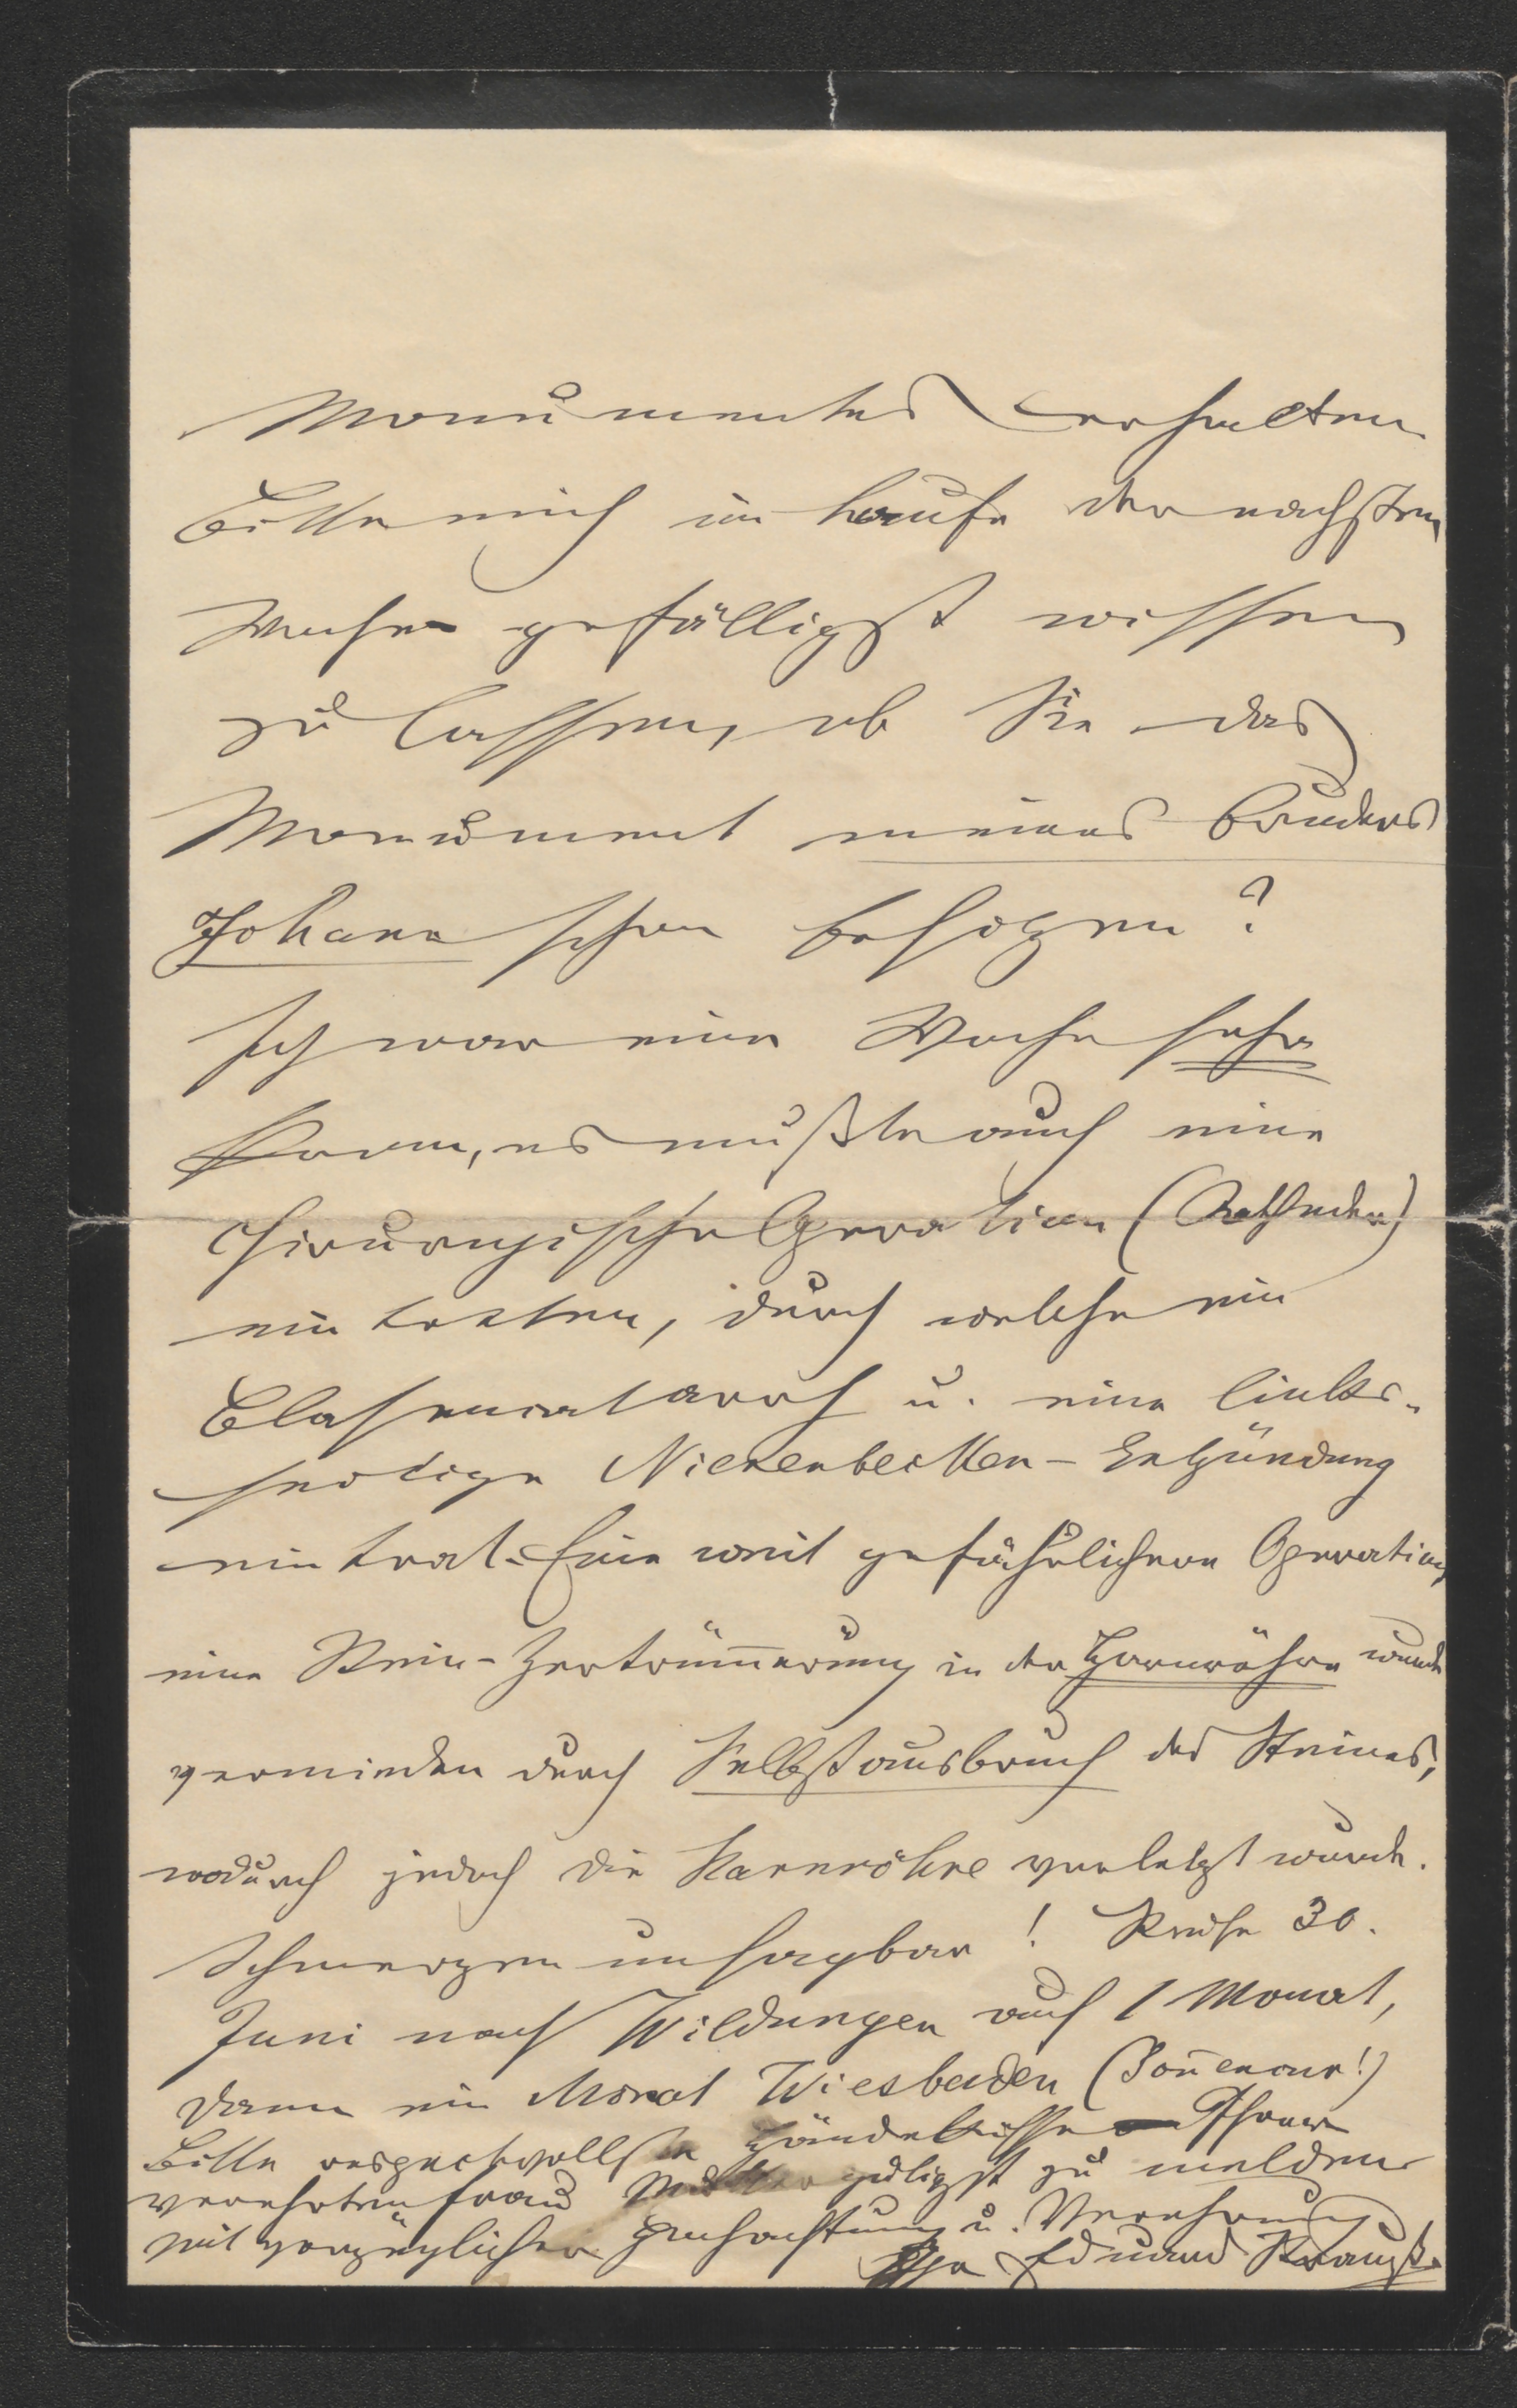 Monumentes erhalten
Bitte mich im Laufe der nächsten
Woche gefälligst wissen
zu lassen, ob Sie das
Monument meines Bruders
Johann schon besitzen?
Ich war eine Woche sehr
krank, es mußte auch eine
chirurgische Operation (Katheder)
eintreten, durch welche ein
Blasencatarrh u. eine links-
seitige Nierenbecken-Entzündung
eintrat. Eine weit gefährlichere Operation
eine Stein-Zertrüm̄erung in der Harnröhre wurde
vermieden durch Selbstausbruch des Steines,
wodurch jedoch die Harnröhre verletzt wurde.
Schmerzen unsagbar! Reise 30.
Juni nach Wildungen auf 1 Monat,
dann ein Monat Wiesbaden
Bitte respectvollste Händeküsse Ihrer
verehrten Frau Mutter gütigst zu melden
mit vorzüglicher Hochachtung u. Verehrung
Ihr Eduard Strauß.